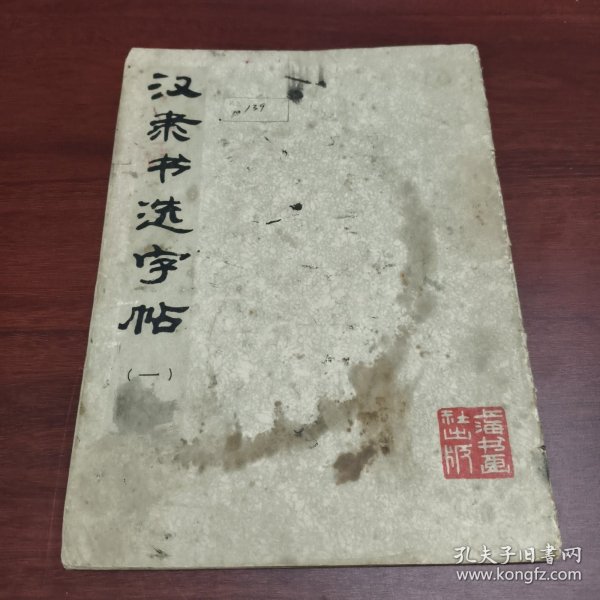 汉隶书选字帖
(一)
139
上海书画
社出版
孔夫子旧書网
www.kongfz.com